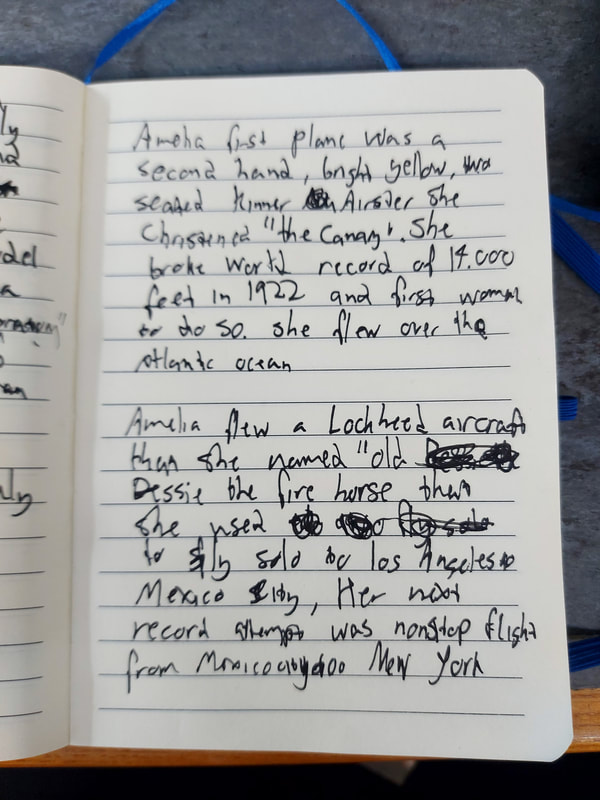 ly
nd
del
a
an
ly
Amelia first plane was a
second hand, bright yellow, two
seated Kinner Airster she
Christened "the Canary". She
broke world record of 14.000
feet in 1922 and first woman
to do so. she flew over the
atlantic ocean
Amelia flew a Lochheed aircraft
than she named "old
Dessie the fire horse then
she used
to fly solo to los Angeles to
Mexico City, Her next
record attempt was nonstop flight
from Mexico city to New York